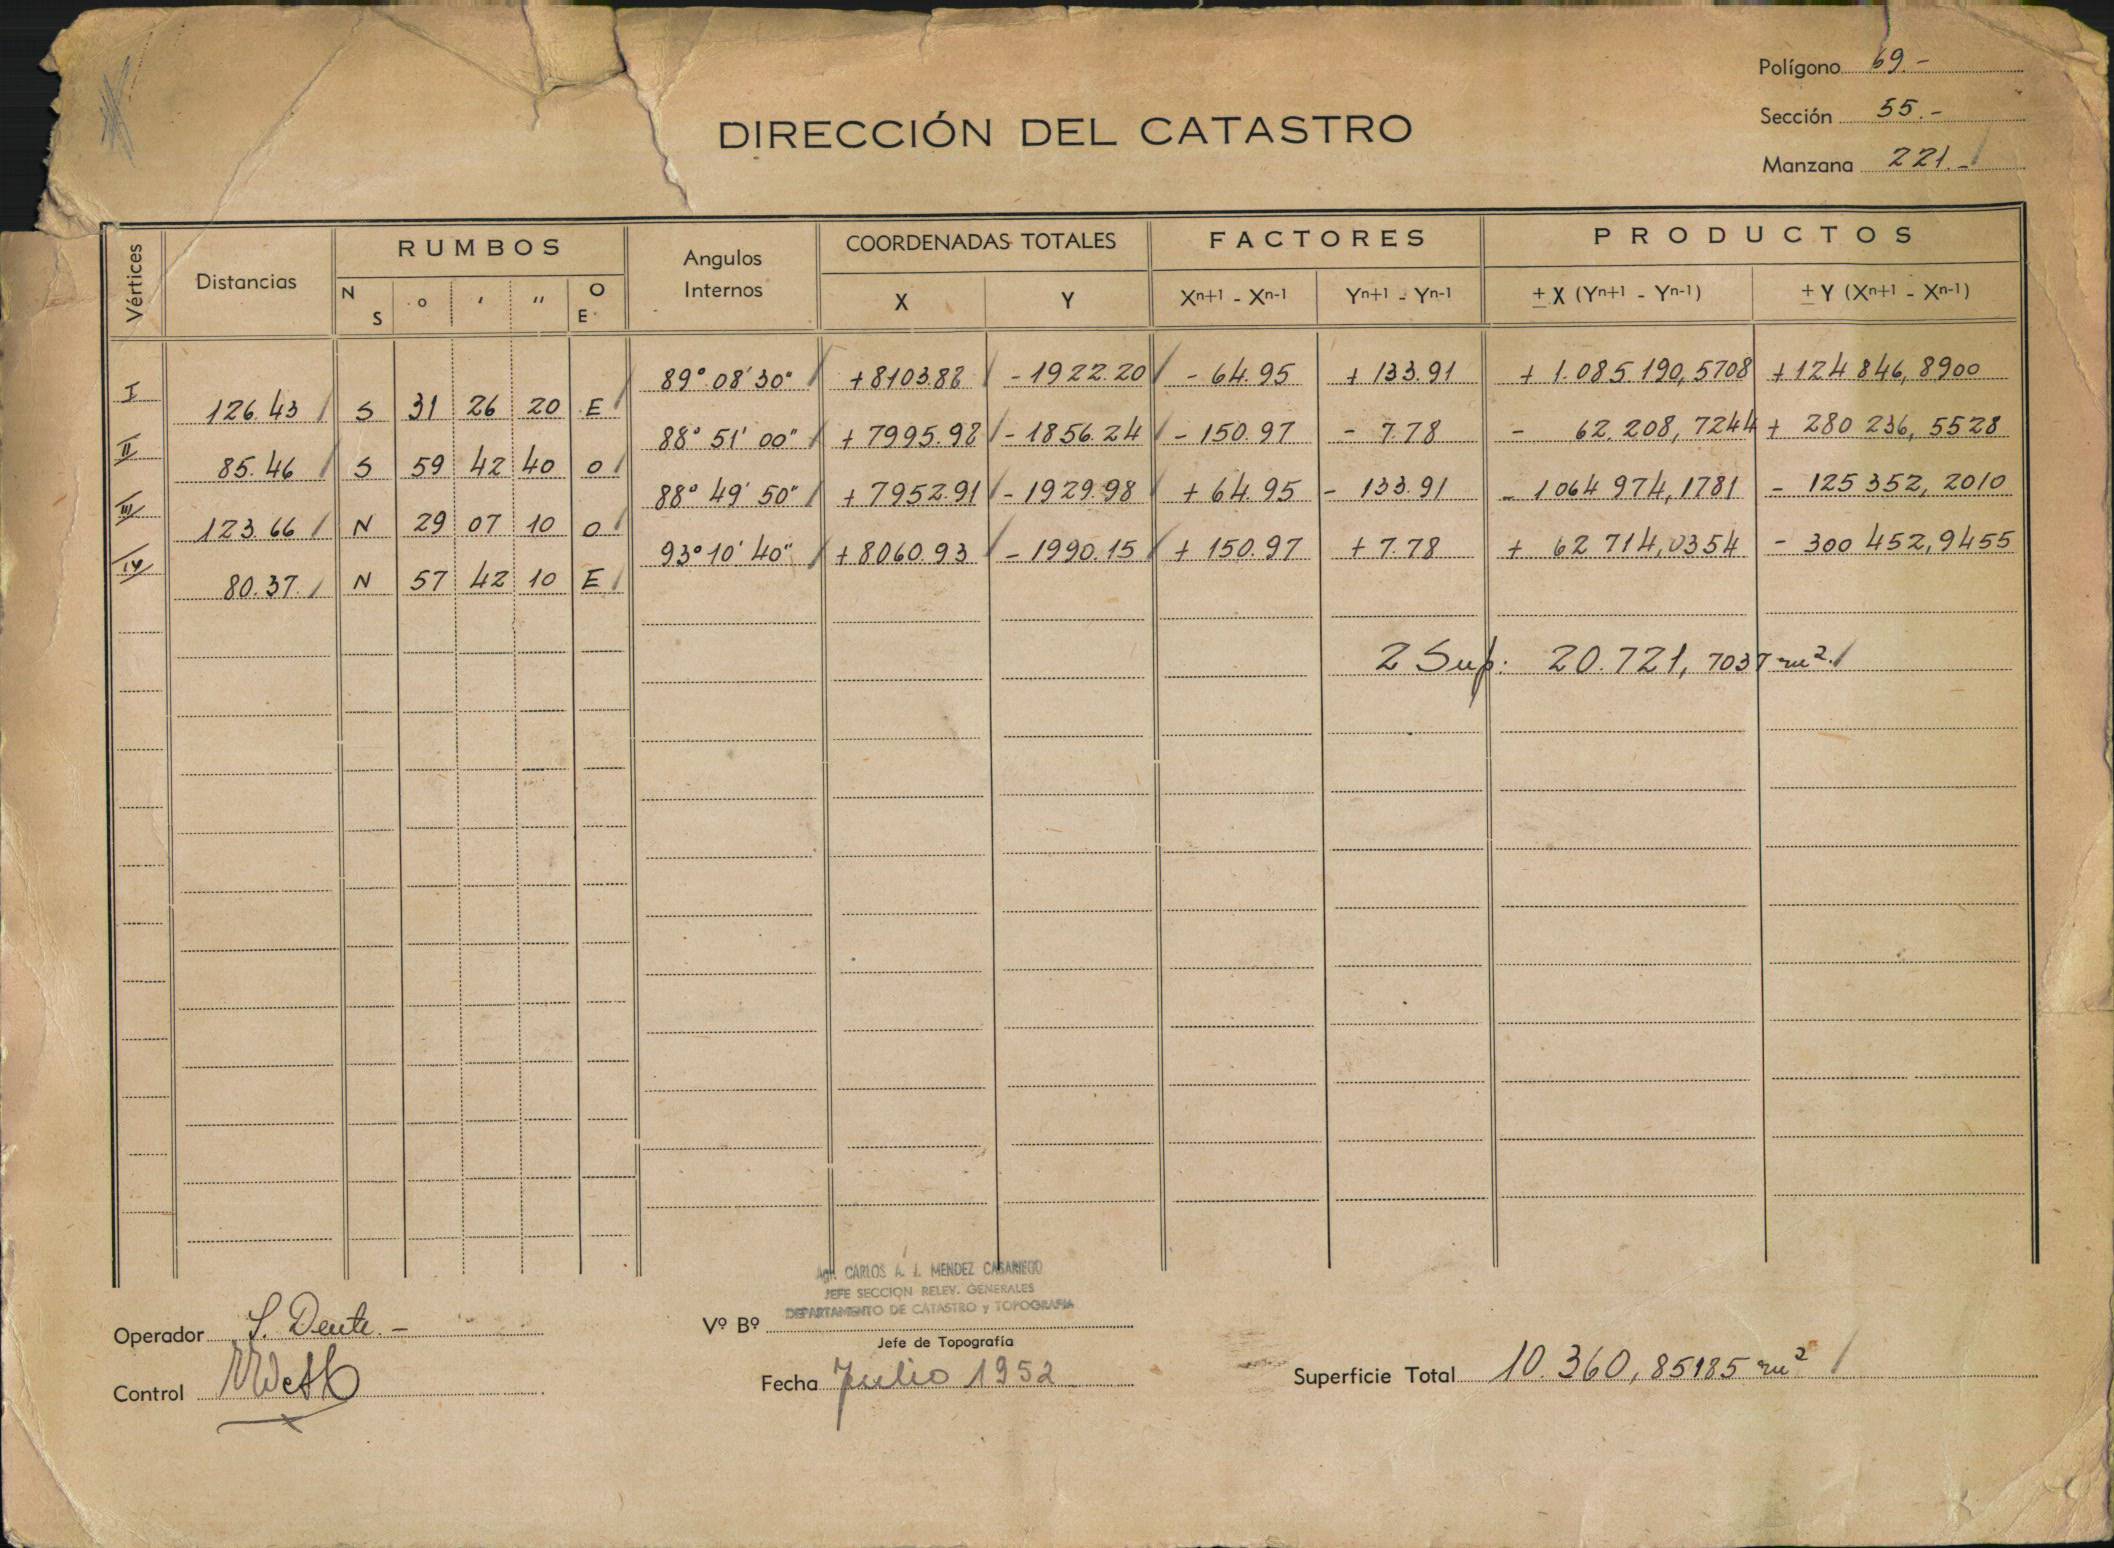 Polígono 69.-
Sección 55.-
Manzana 221.-
DIRECCIÓN DEL CATASTRO
Vértices Distancias RUMBOS Angulos Internos COORDENADAS TOTALES FACTORES PRODUCTOS
N S o ' " O E X Y Xn+1 - Xn-1 Yn+1 - Yn-1 ± X (Yn+1 - Yn-1) ± Y (Xn+1 - Xn-1)
I 89° 08' 30" +8103.88 -1922.20 -64.95 +133.91 +1.085.190,5708 +124 846,8900
126.43 S 31 26 20 E
II 88° 51' 00" +7995.98 -1856.24 -150.97 -7.78 - 62.208,7244 + 280 236,5528
85.46 S 59 42 40 O
III 88° 49' 50" +7952.91 -1929.98 +64.95 -133.91 - 1064 974,1781 - 125 352,2010
123.66 N 29 07 10 O
IV 93° 10' 40" +8060.93 -1990.15 +150.97 +7.78 + 62 714,0354 - 300 452,9455
80.37. N 57 42 10 E
2 Sup: 20.721,7037 m².
Agr. CARLOS A. J. MENDEZ CASARIEGO
JEFE SECCION RELEV. GENERALES
DEPARTAMENTO DE CATASTRO y TOPOGRAFIA
Operador S. Dente.-
Vº Bº
Jefe de Topografía
Control
Fecha Julio 1952
Superficie Total 10.360,85185 m²